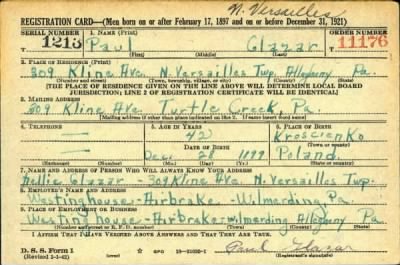 N. Versailles
REGISTRATION CARD—(Men born on or after February 17, 1897 and on or before December 31, 1921)
SERIAL NUMBER 1. NAME (Print) ORDER NUMBER
1213 Paul Glazar 11176
(First) (Middle) (Last)
2. PLACE OF RESIDENCE (Print)
309 Kline Ave. N. Versailles Twp. Allegheny Pa.
(Number and street) (Town, township, village, or city) (County) (State)
[THE PLACE OF RESIDENCE GIVEN ON THE LINE ABOVE WILL DETERMINE LOCAL BOARD
JURISDICTION; LINE 2 OF REGISTRATION CERTIFICATE WILL BE IDENTICAL]
3. MAILING ADDRESS
309 Kline Ave. Turtle Creek, Pa.
[Mailing address if other than place indicated on line 2. If same insert word same]
4. TELEPHONE 5. AGE IN YEARS 6. PLACE OF BIRTH
42 Kroscienko
DATE OF BIRTH (Town or county)
Dec. 28 1899 Poland
(Exchange) (Number) (Mo.) (Day) (Yr.) (State or country)
7. NAME AND ADDRESS OF PERSON WHO WILL ALWAYS KNOW YOUR ADDRESS
Nellie Glazar - 309 Kline Ave. N. Versailles Twp.
8. EMPLOYER'S NAME AND ADDRESS
Westinghouse - Airbrake - Wilmerding, Pa.
9. PLACE OF EMPLOYMENT OR BUSINESS
Westinghouse - Airbrake - Wilmerding Allegheny Pa.
(Number and street or R. F. D. number) (Town) (County) (State)
I AFFIRM THAT I HAVE VERIFIED ABOVE ANSWERS AND THAT THEY ARE TRUE.
D. S. S. Form 1
(Revised 1-1-42) GPO 16—21630-1 Paul Glazar